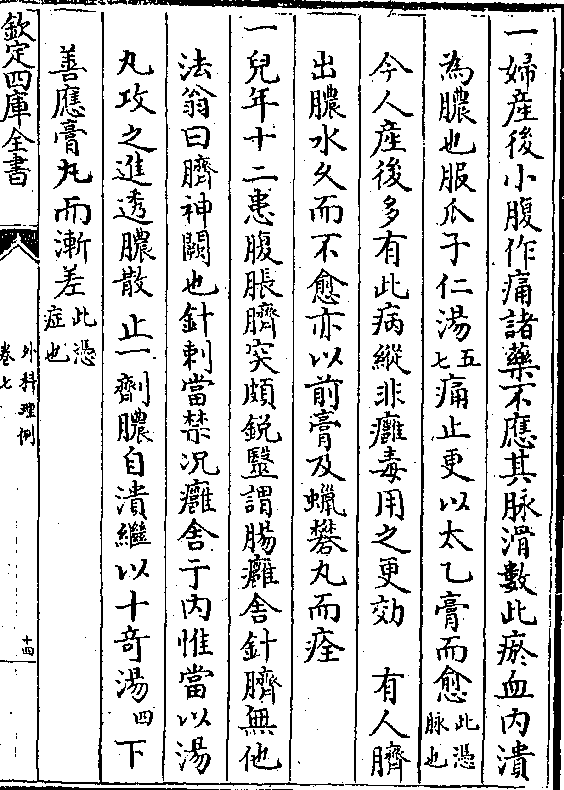 一婦産後小腹作痛諸藥不應其脉滑數此瘀血内潰
為膿也服瓜子仁湯五七痛止更以太乙膏而愈此憑脉也
今人産後多有此病縱非癰毒用之更効　有人臍
出膿水久而不愈亦以前膏及蠟礬丸而痊
一兒年十二患腹脹臍突頗銳醫謂腸癰舍針臍無他
法翁曰臍神闕也針刺當禁况癰舍于内惟當以湯
丸攻之進透膿散止一劑膿自潰繼以十奇湯四下
善應膏丸而漸差此憑症也
欽定四庫全書
外科理例
卷七
十四